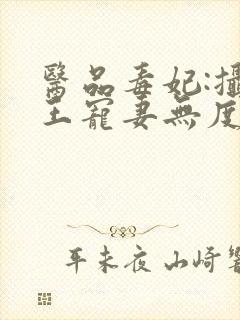 醫品毒妃:攝
王寵妻無度
平未夜 山崎響